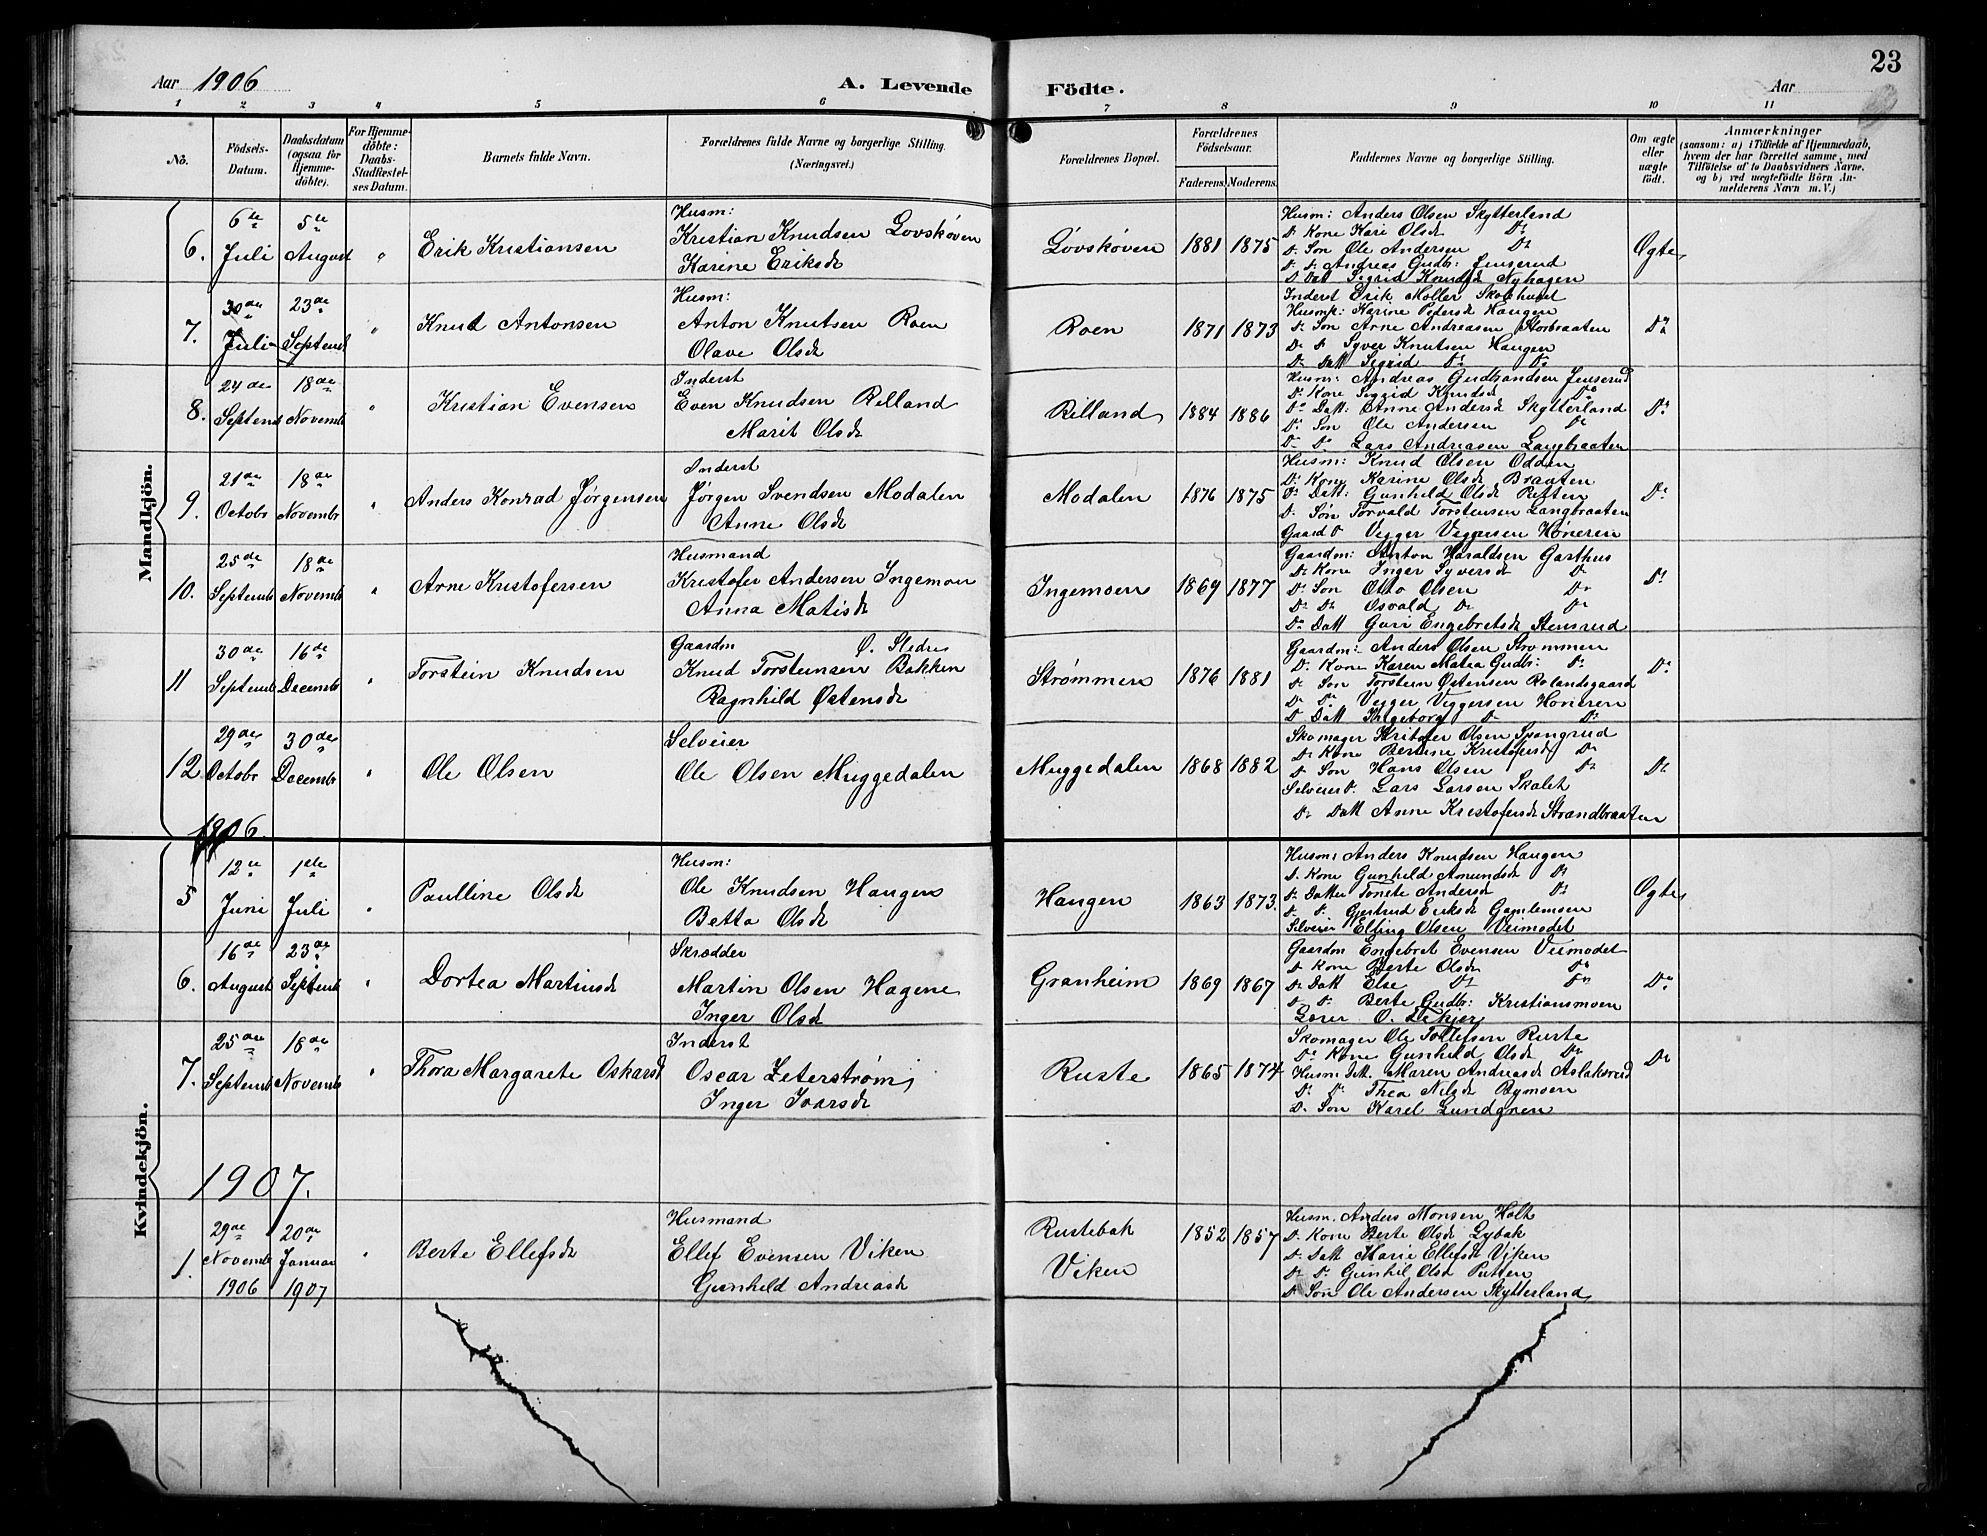 Aar 1906 A. Levende Födte. Aar 23
1 2 3 4 5 6 7 8 9 10 11
No. Födsels-Datum. Daabsdatum (ogsaa for Hjemmedöbte). For Hjemmedöbte: Daabs-Stadfæstelses Datum. Barnets fulde Navn. Forældrenes fulde Navne og borgerlige Stilling. (Næringsvei.) Forældrenes Bopæl. Forældrenes Födselsaar. Faderens. Moderens. Faddernes Navne og borgerlige Stilling. Om ægte eller uægte født. Anmærkninger (saasom: a) i Tilfælde af Hjemmedaab, hvem der har forrettet samme, med Tilföielse af to Daabsvidners Navne, og b) ved uægtefödte Börn Anmelderens Navn m. V.)
Mandkjön.
6. 6te Juli 5te August " Erik Kristiansen
Husm:
Kristian Knudsen Lovskoven
Karine Eriksd
Løvskøven 1881 1875
Husm: Anders Olsen Skytterland
D. Kone Kari Olsd Do
D. Son Ole Andersen Do
D. D. Andreas Gudb: Jenserud
D. Dat Sigrid Knudsd Nyhagen
Ægte
7. 30de Juli 23de Septemb " Knud Antonsen
Husm:
Anton Knutsen Roen
Olave Olsd
Roen 1871 1873
Inderst Erik Moller Skolehuset
Husmk: Karine Pedersd Haugen
D. Son Arne Andreasen Storbraaten
Do D Syver Knutsen Haugen
Do Datt Sigrid Do Do
Do
8. 24de Septemb 18de Novemb " Kristian Evensen
Inderst
Even Knudsen Rilland
Marit Olsd
Rilland 1884 1886
Husm: Andreas Gudbrandsen Jenserud
D. Kone Sigrid Knudsd Do
Do Datt: Anne Andersd Skytterland
D. Son Ole Andersen Do
D. Do Lars Andreasen Langbraaten
Do
9. 21de Octobr 18de Novembr " Anders Konrad Jørgensen
Inderst
Jørgen Svendsen Modalen
Anne Olsd
Modalen 1876 1875
Husm: Knud Olsen Odden
D. Kone Karine Olsd Braaten
D. Datt: Gunhild Olsd Putten
D. Søn Torvald Torstensen Langbraaten
Gaard D Vegger Veggersen Høneren
Do
10. 25de Septemb 18de Novemb " Arne Kristofersen
Husmand
Kristofer Andersen Ingemoen
Anna Matisd
Ingemoen 1869 1877
Gaardm: Anton Haraldsen Garthus
Do Kone Inger Syversd Do
D. Son Otto Olsen Do
D. Do Osvald Do Do
Do Datt Guri Engebretsd Stensrud
Do
11 30de Septemb 16de Decemb " Torstein Knudsen
Gaardm Ø. Slidre
Knud Torsteinsen Bakken
Ragnhild Østensd
Strømmen 1876 1881
Gaardm: Anders Olsen Strommen
D. Kone Karen Matea Gudb: Do
D. Son Torstein Østensen Rolandsgaard
D. Do Vegger Veggersen Honeren
D Datt Ingeborg D Do
Do
12. 29de Octobr 30de Decemb " Ole Olsen
Selveier
Ole Olsen Muggedalen
Muggedalen 1868 1882
Skomager Kristofer Olsen Spangrud
D. Kone Bernine Kristofersd Do
D. Son Hans Olsen Do
Selveier D. Lars Larsen Skalet
Do Datt Anne Kristofersd Strandbraaten
Do
1906.
Kvindekjön.
5 12te Juni 1ste Juli " Paulline Olsd
Husm:
Ole Knudsen Haugen
Betta Olsd
Haugen 1863 1873.
Husm: Anders Knudsen Haugen
D. Kone Gunhild Amundsd Do
D. Datter Tonete Andersd Do
D. D. Gjertrud Eriksd Gamlemoen
Selveier Elling Olsen Veimodet
Ægte
6. 16de August 23de Septemb " Dortea Martinsd
Skrædder
Martin Olsen Hagene
Inger Olsd
Granheim 1869 1867
Gaardm Engebret Evensen Veimodet
D. Kone Berte Olsd Do
D. Datt Else Do Do
D. D. Berte Gudb: Kristiansmoen
Lærer O. Tekjer
Do
7. 25de Septemb 18de Novemb " Thora Margarete Oskarsd
Inderst
Oscar Zeterstrøm
Inger Ivarsd
Ruste 1865 1874
Skomager Ole Tollefsen Ruste
Do Kone Gunhild Olsd Do
Husm Datt. Maren Andreasd Aslaksrud
D. D. Thea Nilsd Bymoen
D. Son Karel Lundgren
Do
1907.
1. 29de Novemb 1906 20de Januar 1907 " Berte Ellefsd
Husmand
Ellef Evensen Viken
Gunhild Andreasd
Rustebak
Viken
1852 1857
Husm. Anders Monsen Holt
D. Kone Berte Olsd Lybak
D. Datt Marie Ellefsd Viken
D. D. Gunhil Olsd Putten
D. Son Ole Andersen Skytterland